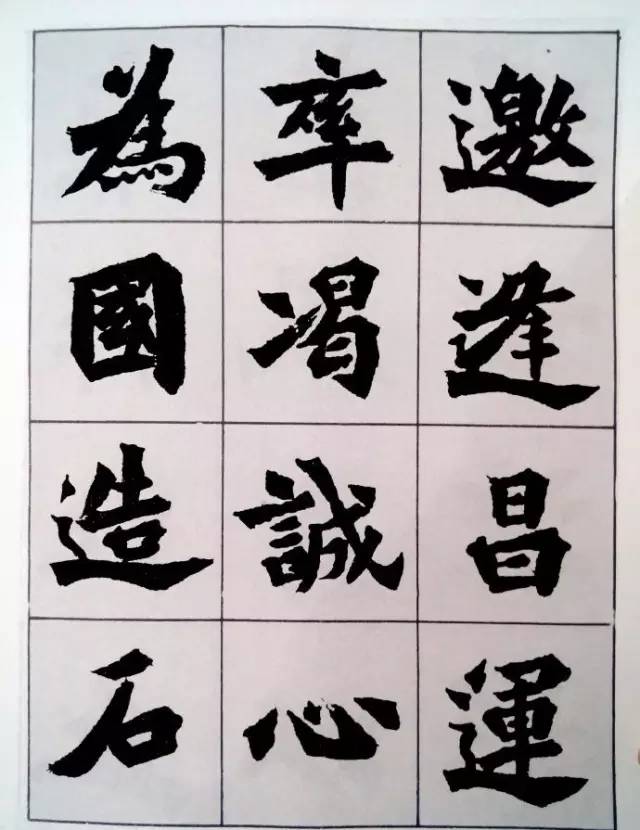 邀逢昌運
率渴誠心
為國造石